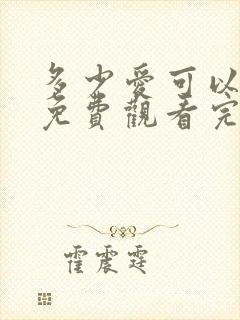 多少愛可以
免費觀看完
霍震霆